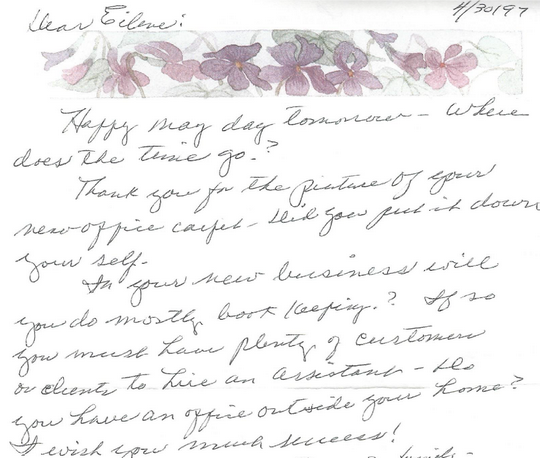 Dear Eilene:
4/30/97
Happy may day tomorrow - Where
does the time go.?
Thank you for the picture of your
new office carpet - Did you put it down
your self.
In your new business will
you do mostly book keeping.? If so
you must have plenty of customers
or clients to hire an assistant - Do
you have an office outside your home?
I wish you much success!